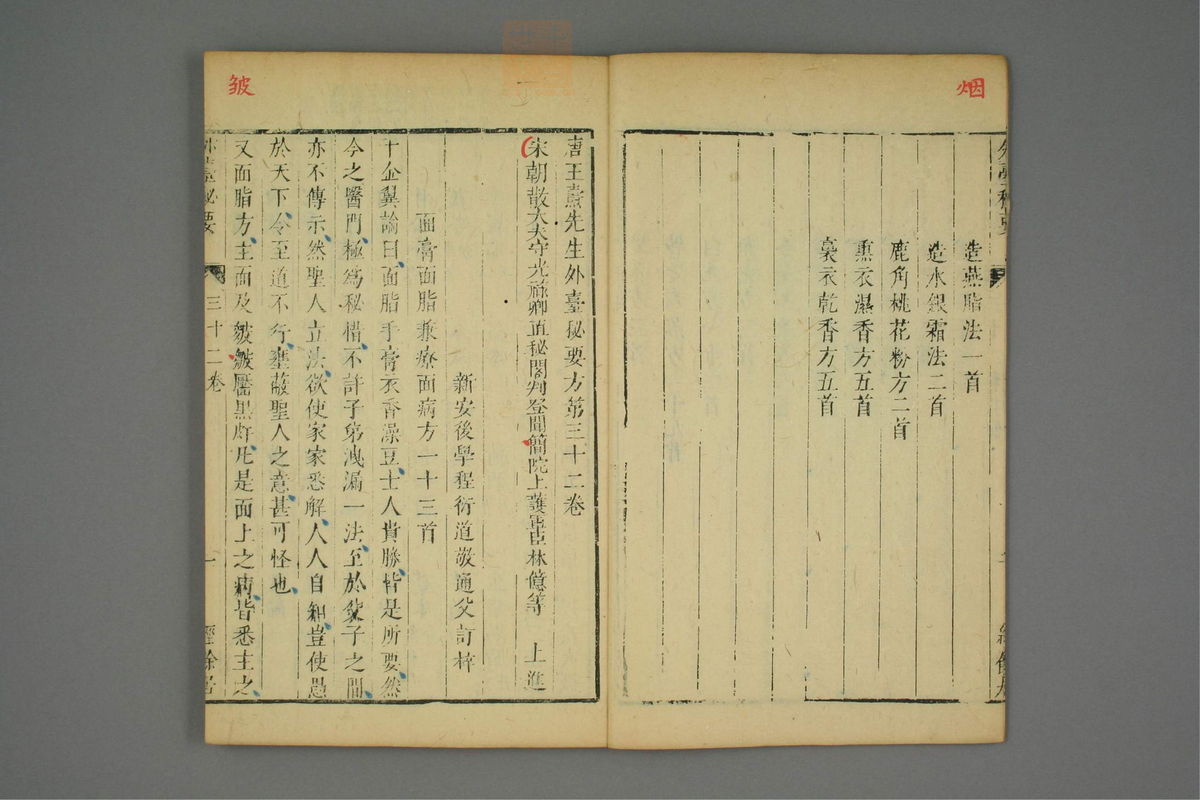 烟
外臺秘要
造燕脂法一首
造水銀霜法二首
鹿角桃花粉方二首
熏衣濕香方五首
裛衣乾香方五首
皺
唐王燾先生外臺秘要方第三十二卷
宋朝散大夫守光祿卿直秘閣判登聞簡院上護軍臣林億等　上進
新安後學程衍道敬通父訂梓
面膏面脂兼療面病方一十三首
千金翼論曰面脂手膏衣香澡豆士人貴勝皆是所要然
今之醫門極為秘惜不許子弟洩漏一法至於父子之間
亦不傳示然聖人立法欲使家家悉解人人自知豈使愚
於天下令至道不行壅蔽聖人之意甚可怪也
又面脂方主面及皴皺黶黑䵟凡是面上之病皆悉主之
外臺秘要　三十二卷　一　經餘居